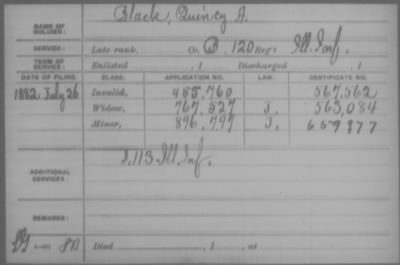 NAME OF SOLDIER: Black, Quincy A.
SERVICE: Late rank, Co. B, 120 Reg't Ill. Inf.
TERM OF SERVICE: Enlisted , 1 Discharged , 1
DATE OF FILING. CLASS. APPLICATION NO. LAW. CERTIFICATE NO.
1882 July 26 Invalid, 455,760 567,562
Widow, 767,527 J. 563,084
Minor, 896,797 J. 659,977
ADDITIONAL SERVICES: I, 113 Ill. Inf.
REMARKS:
Died , 1 , at